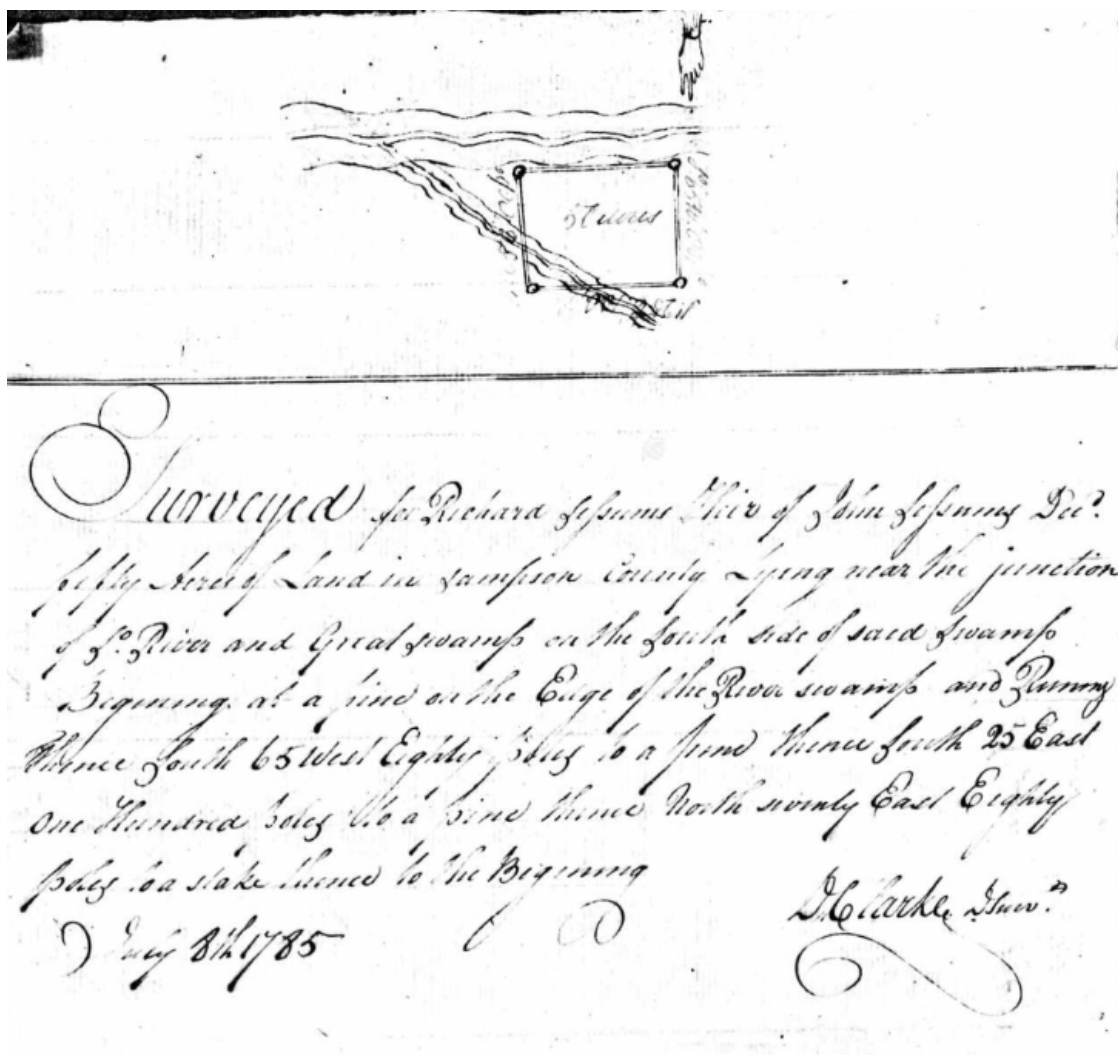 Surveyed for Richard Sessums Heir of John Sessums Decd.
fifty Acres of Land in Sampson County Lying near the junction
of So. River and Great swamp on the South side of said Swamp
Begining at a pine on the Edge of the River swamp and Runing
thence South 65 West Eighty poles to a pine thence South 25 East
One Hundred poles to a pine thence North seventy East Eighty
poles to a stake thence to the Begining
July 8th 1785
D. Clarke, D Survr.